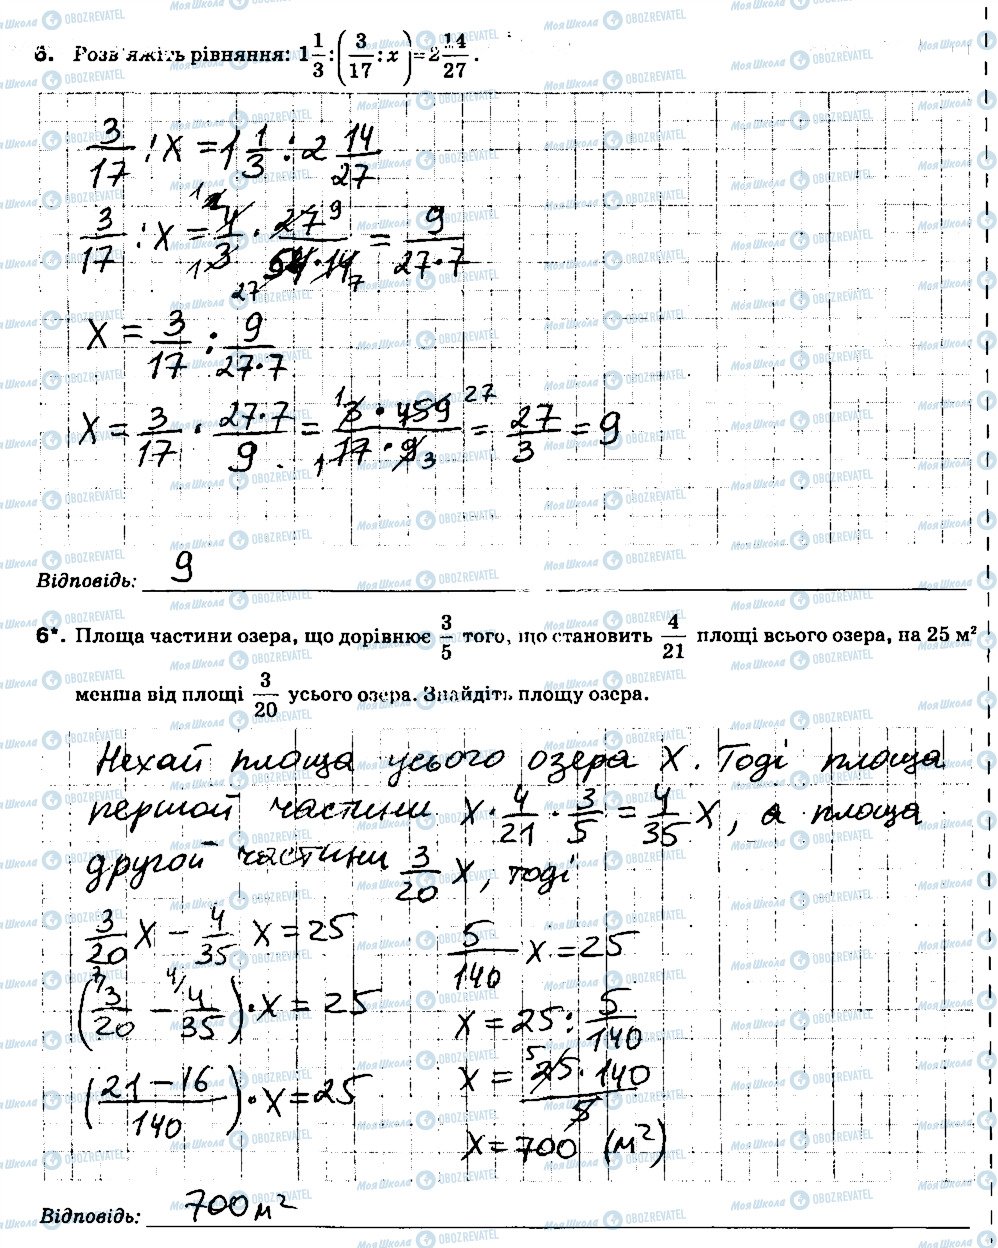 6. Розв'яжіть рівняння: 1 1/3 : (3/17 : x) = 2 14/27.
3/17 : X = 1 1/3 : 2 14/27
3/17 : X = 4/3 · 27/54·14 = 9/27·7
X = 3/17 : 9/27·7
X = 3/17 · 27·7/9 = 3·459/17·9 = 27/3 = 9
Відповідь: 9
6*. Площа частини озера, що дорівнює 3/5 того, що становить 4/21 площі всього озера, на 25 м²
менша від площі 3/20 усього озера. Знайдіть площу озера.
Нехай площа усього озера X. Тоді площа
першой частини X · 4/21 · 3/5 = 4/35 X, а площа
другой частини 3/20 X, тоді
3/20 X – 4/35 X = 25
(3/20 – 4/35) · X = 25
(21 – 16/140) · X = 25
5/140 X = 25
X = 25 : 5/140
X = 25·140/5
X = 700 (м²)
Відповідь: 700 м²
Моя Школа OBOZREVATEL